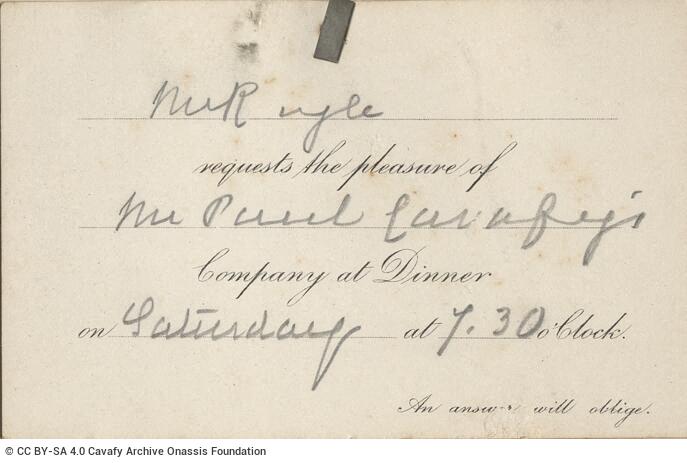 Mr R
requests the pleasure of
Mr Paul Cavafy's
Company at Dinner
on Saturday at 7.30 o'Clock.
An answer will oblige.
© CC BY-SA 4.0 Cavafy Archive Onassis Foundation